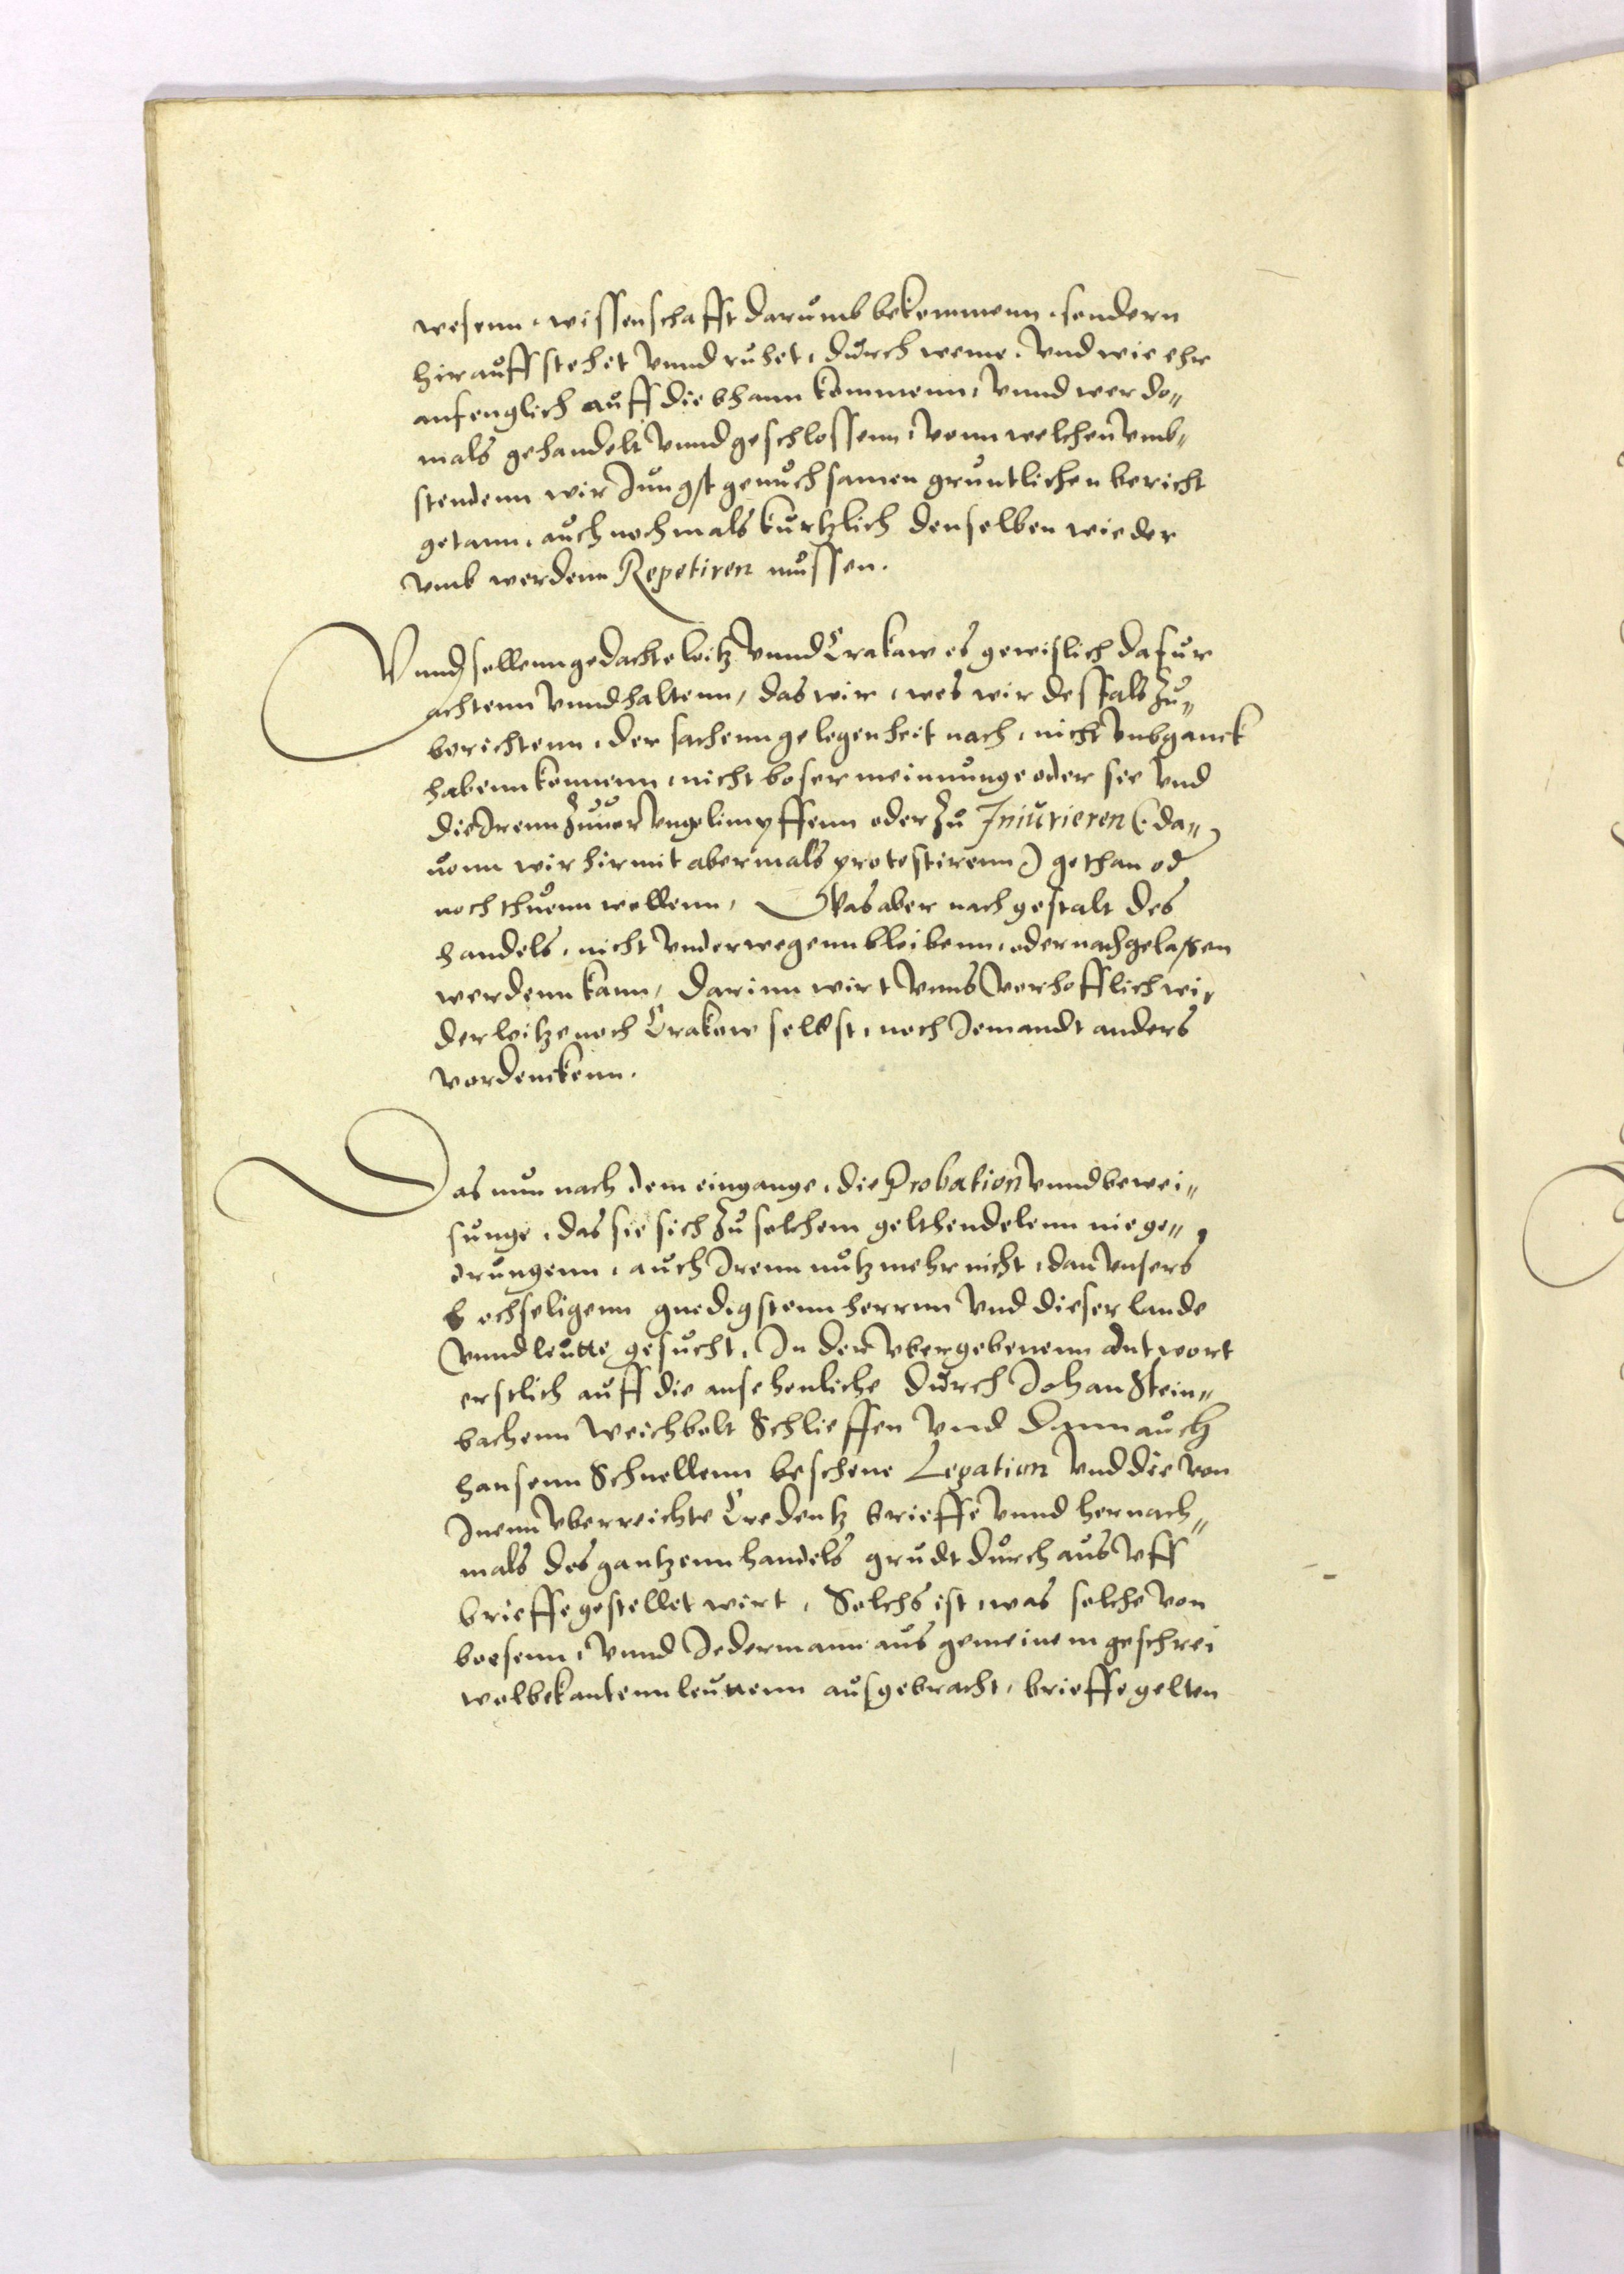 wesenn, wissenschafft darumb bekommenn, sondern
hirauff stehet vnnd ruhet, durch weme, vnd wie ehr
anfenglich auff die bhann kommenn, vnnd wer do„
mals gehandelt vnnd geschlossenn, vonn welchen vmb„
stendenn wir Jungst genuchsamen gruntlichen bericht
getann, auch nochmals kurtzlich denselben wieder
vmb werdenn Repetiren mussen.
Vnnd sollenn gedachte loitz vnnd Crakaw es gewislich dafur
achtenn vnnd haltenn, das wir, wes wir desfals zu„
berichtenn, der sachenn gelegenheit nach, nicht vmbganck
habenn konnenn, nicht boser meinnunge oder sie vnd
die Irenn zuuorvngelimpffenn oder zu Iniurieren (: da„
uonn wir hirmit abermals protestirenn) gethan od
noch thuenn wollenn, Was aber nach gestalt des
handels, nicht vnderwegenn bleibenn, oder nachgelaßen
werdenn kann, darinn wirt vnns verhofflich wi,
der loitze noch Crakow selbst, noch Jemandt anders
vordenckenn.
Das nun nach dem eingange, die Probation vnnd bewei„
sunge, das sie sich zu solchem gelthendelenn nie ge„
drungenn, auch Irenn nutz mehr nicht, dan vnsers
hochseligenn gnedigstenn herrnn vnd dieser lande
vnnd leutte gesucht, In der vbergebenenn antwort
erstlich auff die ansehenliche durch Johan Stein„
bachenn Weichbolt Schlieffen vnd dann auch
hansenn Schnellenn beschene Legation vnd die von
Inenn vberreichte Credentz brieffe vnnd hernach„
mals des gantzenn handels grudt durchaus vff
brieffe gestellet wirt, Solchs ist, was solche von
boesenn, vnnd Jedermann aus gemeinem geschrei
wolbekantenn leuttenn ausgebracht, brieffe gelten